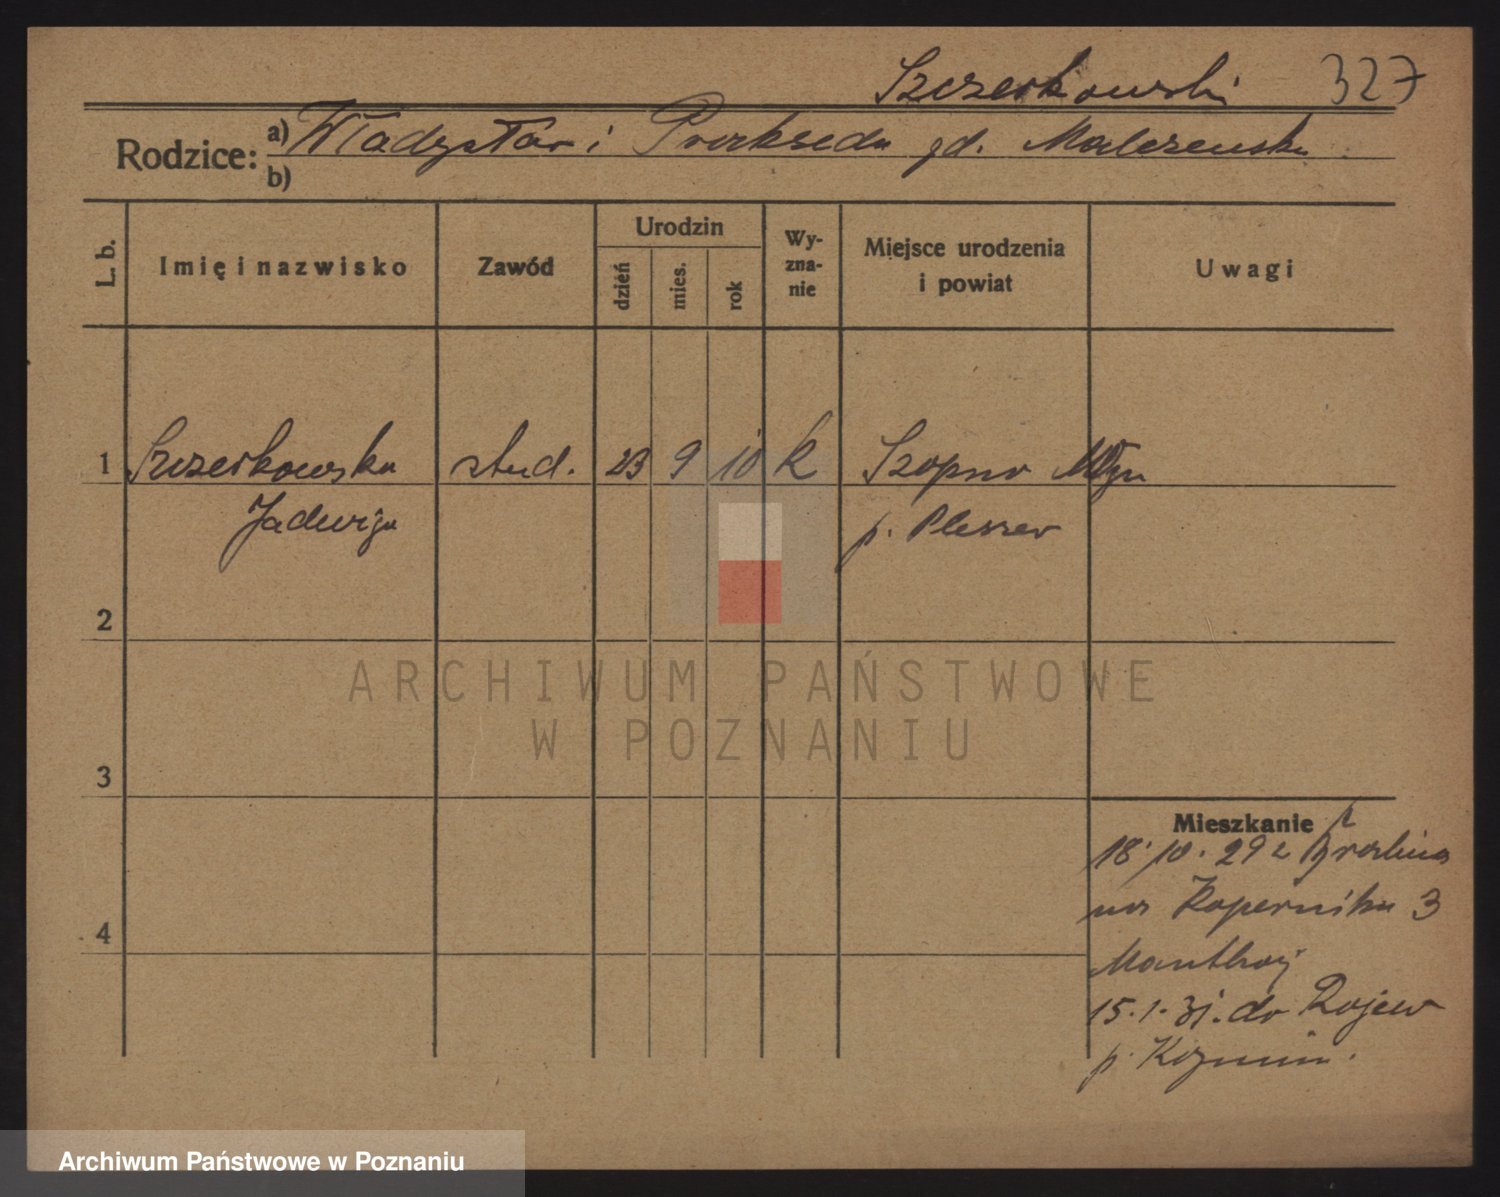 Szczerkowski 327
Rodzice: a) Władysław i Prakseda zd.
b)
L. b. Imię i nazwisko Zawód Urodzin dzień mies. rok Wy-zna-nie Miejsce urodzenia i powiat Uwagi
1 Szczerkowska stud. 23 9 10 k Szopno Młyn
Jadwiga p. Pleszew
2
ARCHIWUM PAŃSTWOWE
W POZNANIU
3
Mieszkanie
18.10.29 z
na Kopernika 3
15.1.31. do
p. Koźmin.
4
Archiwum Państwowe w Poznaniu